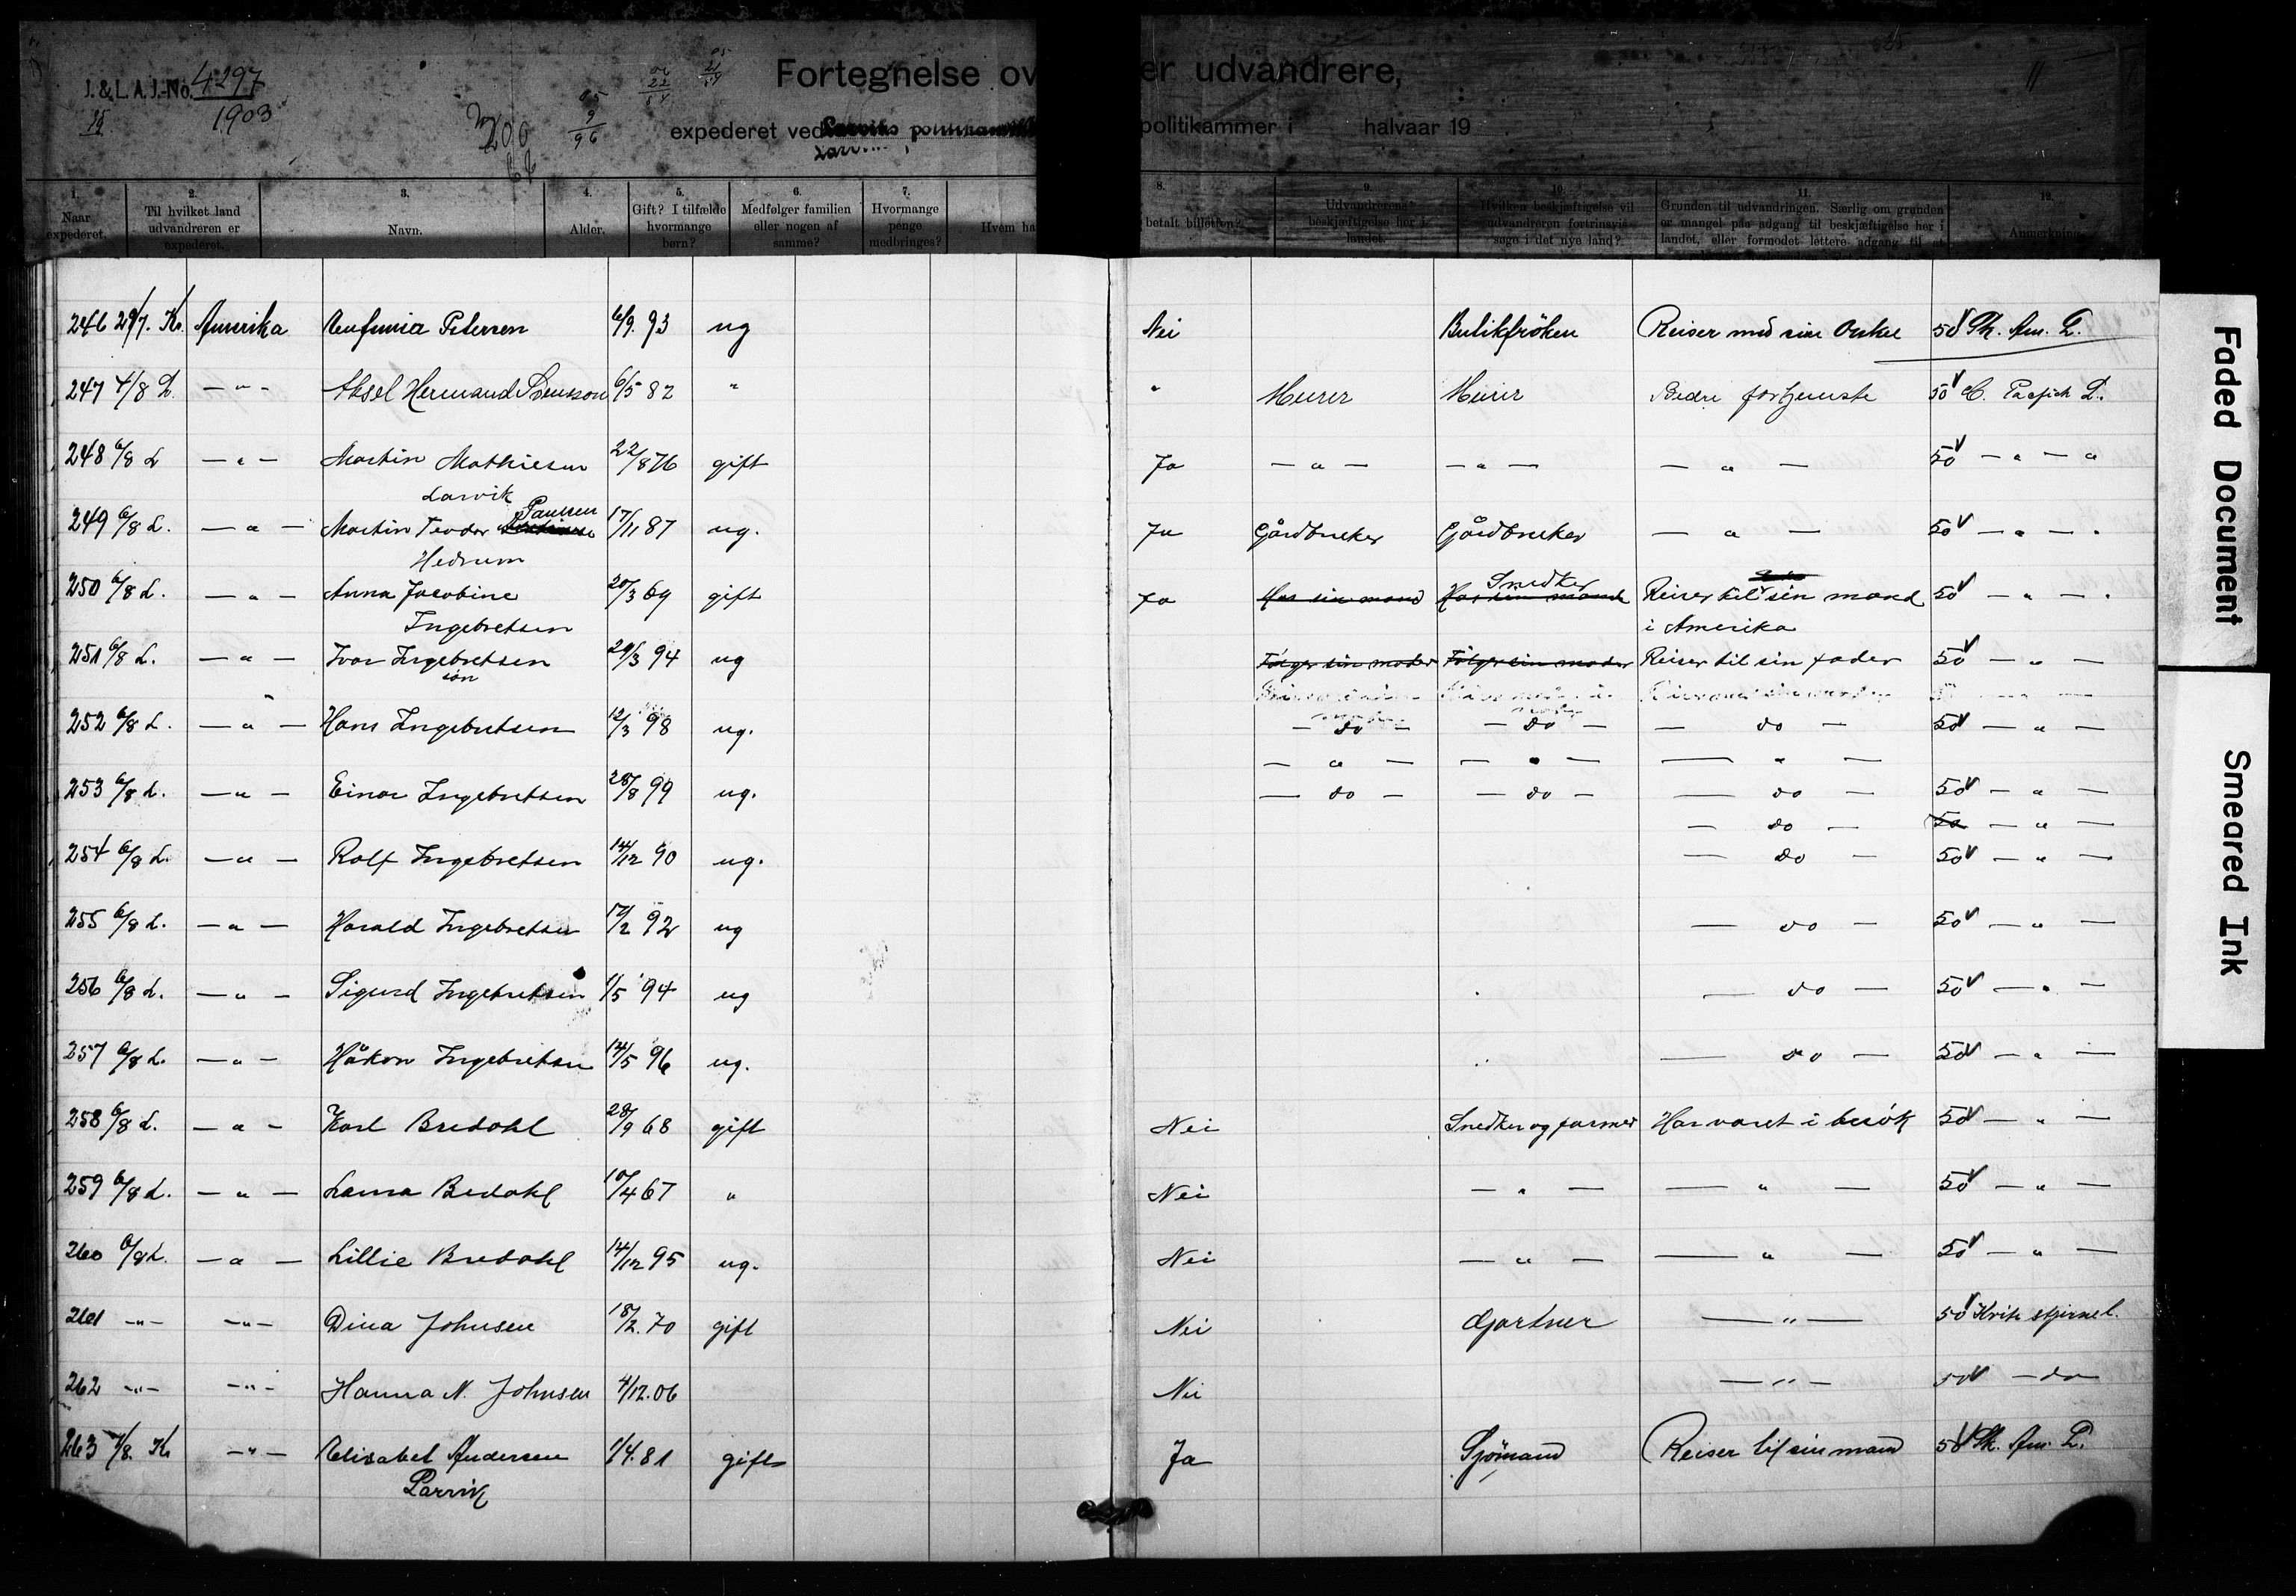 J. & L. A. J.-No. 4297
1903
Fortegnelse over udvandrere,
expederet ved Larviks politikammer i halvaar 19
1. Naar expederet.
2. Til hvilket land udvandreren er expederet.
3. Navn.
4. Alder.
5. Gift? I tilfælde hvormange børn?
6. Medfølger familien eller nogen af samme?
7. Hvormange penge medbringes?
8. Hvem ha betalt billetten?
9. Udvandrerens beskjæftigelse her i landet.
10. Hvilken beskjæftigelse vil udvandreren fortrinsvis søge i det nye land?
11. Grunden til udvandringen. Særlig om grunden er mangel paa adgang til beskjæftigelse her i landet, eller formodet lettere adgang til at
12. Anmerkning.
246 29/7. Kr. Amerika Petersen 6/9. 93 ug Nei Butikfröken Reiser med sin Onkel 50 Sk. Am. L.
247 4/8 L. — " — Aksel Hermand Svensson 6/5 82 " " Murer Murer Bedre fortjeneste 50 C. Pacific L.
248 6/8 L — " — Martin Mathiesen 22/8 76 gift Ja — " — — " — — " — 50 — " — "
Larvik
249 6/8 L. — " — Martin Teodor Paulsen 17/11 87 ug. Ja Gårdbruker Gårdbruker — " — 50 — " — "
Hedrum
250 6/8 L. — " — Anna Jacobine 20/3 69 gift Ja Hos sin mand Hos sin mand Snedker Reiser til sin mand 50 — " — "
Ingebretsen i Amerika
251 6/8 L. — " — Ivar Ingebretsen 29/3 94 ug Følger sin moder Følger sin moder Reiser til sin fader 50 — " —
sön
252 6/8 L. — " — Hans Ingebretsen 12/3 98 ug. — do — — do — — do — 50 — " —
— " — — " — — " —
253 6/8 L. — " — Einar Ingebretsen 28/8 99 ug. — do — — do — — do — 50 — " —
— do — 50 — " —
254 6/8 L. — " — Rolf Ingebretsen 14/12 90 ug. — do — 50 — " —
255 6/8 L. — " — Harald Ingebretsen 17/2 92 ug — do — 50 — " —
256 6/8 L. — " — Sigurd Ingebretsen 1/5 94 ug — do — 50 — " —
257 6/8 L. — " — Håkon Ingebretsen 14/5 96 ug. — do — 50 — " —
258 6/8 L. — " — Karl Bredahl 28/9 68 gift Nei Snedker og farmer Har varet i besök 50 — " —
259 6/8 L. — " — Laura Bredahl 10/4 67 " Nei — " — — " — 50 — " —
260 6/8 L. — " — Lillie Bredahl 14/12 95 ug. Nei — " — — " — 50 — " —
261 — " — — " — Dina Johnsen 18/2. 70 gift Nei Gartner — " — 50 Hvite stjerne l.
262 — " — — " — Hanna N. Johnsen 4/12. 06 Nei — " — 50 — do
263 7/8. Kr — " — Elisabet Andersen 1/4. 81 gift Ja Sjömand Reiser til sin mand 50 Sk. Am. L.
Larvik
Faded Document
Smeared Ink